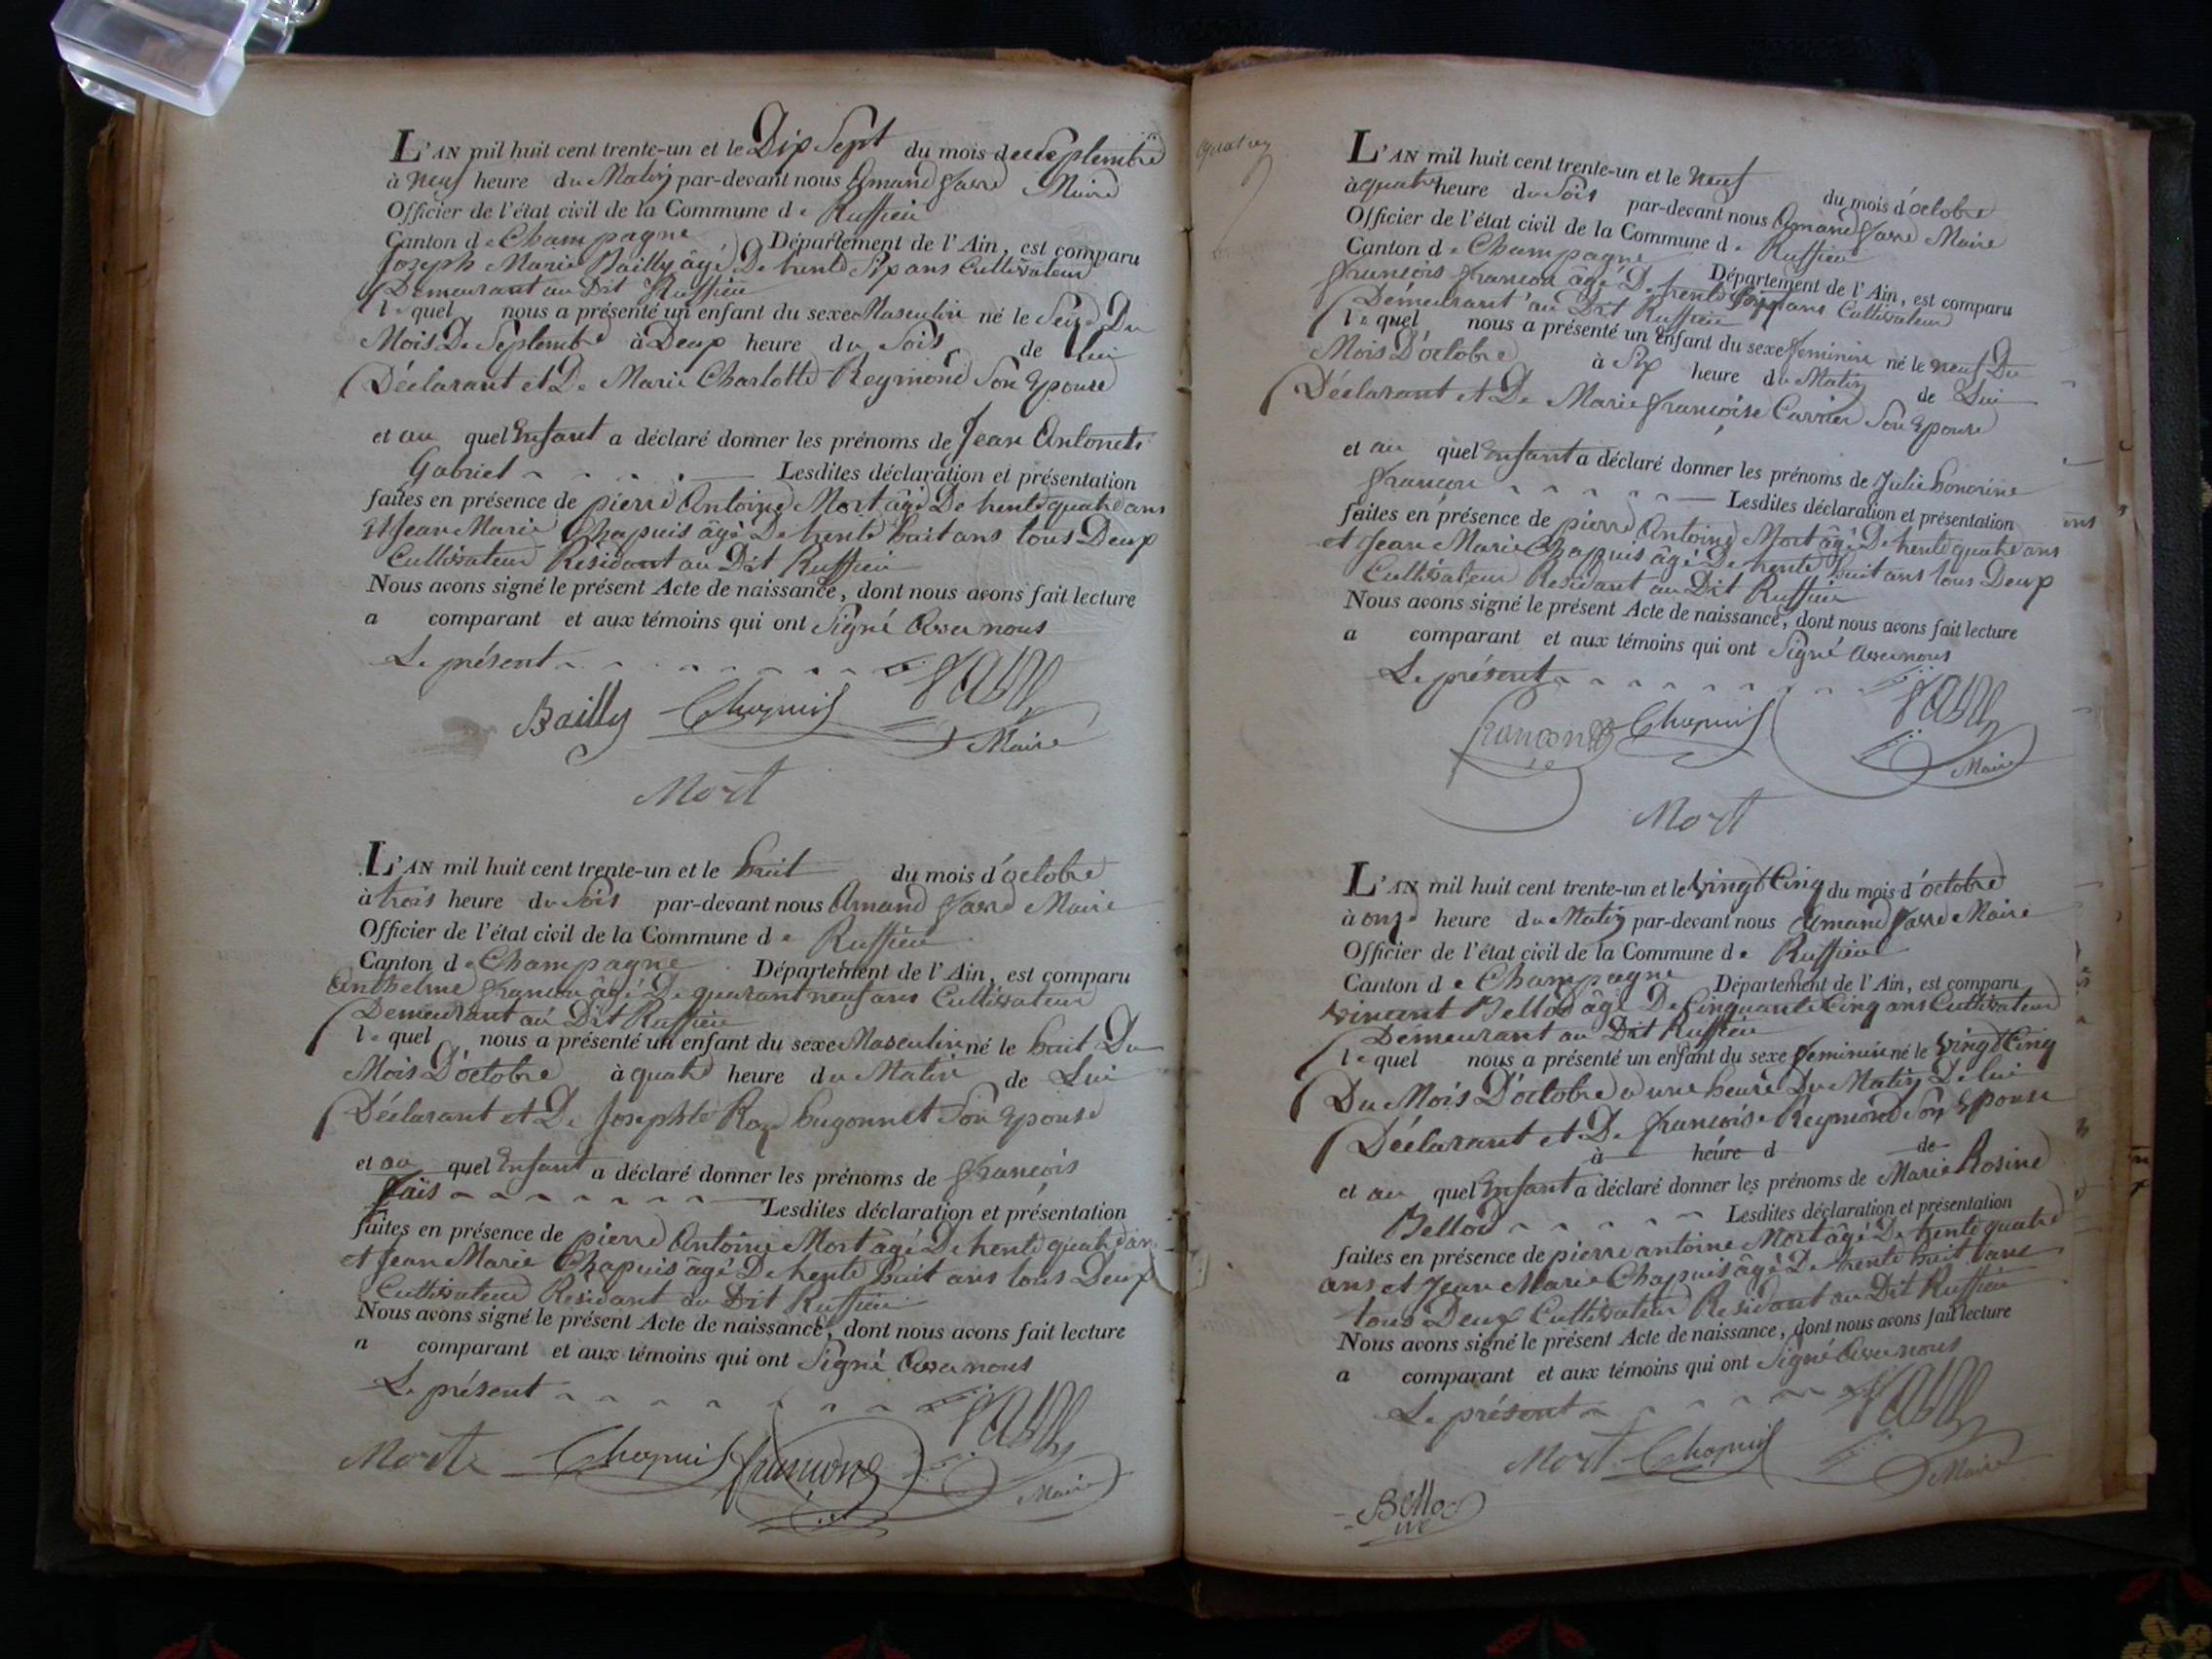 L'AN mil huit cent trente-un et le Dix Sept du mois de Septembre
à neuf heure du Matin par-devant nous Amand favre Maire
Officier de l'état civil de la Commune de Ruffieu
Canton de Champagne Département de l'Ain, est comparu
Joseph Marie Bailly âgé De trente Six ans Cultivateur
Demeurant au Dit Ruffieu
le quel nous a présenté un enfant du sexe Masculin né le Seize Du
Mois De Septembre à Deux heure du Soir de Lui
Déclarant et De Marie Charlotte Reymond Son Epouse
et au quel Enfant a déclaré donner les prénoms de Jean
Gabriel Lesdites déclaration et présentation
faites en présence de pierre Antoine Mort âgé De trente quatre ans
et Jean Marie Chapuis âgé De trente huit ans tous Deux
Cultivateur Résidant au Dit Ruffieu
Nous avons signé le présent Acte de naissance, dont nous avons fait lecture
a comparant et aux témoins qui ont Signé Avec nous
Le présent
Bailly Chapuis favre
Maire
Mort
L'AN mil huit cent trente-un et le huit du mois d'octobre
à trois heure du Soir par-devant nous Amand favre Maire
Officier de l'état civil de la Commune de Ruffieu
Canton de Champagne Département de l'Ain, est comparu
Anthelme françon âgé De quarant neuf ans Cultivateur
Demeurant au Dit Ruffieu
le quel nous a présenté un enfant du sexe Masculin né le huit Du
Mois D'octobre à quatre heure du Matin de Lui
Déclarant et De Josephte Roze hugonnet Son Epouse
et au quel Enfant a déclaré donner les prénoms de françois
Lesdites déclaration et présentation
faites en présence de pierre Antoine Mort âgé De trente quatre ans
et Jean Marie Chapuis âgé De trente huit ans tous Deux
Cultivateur Résidant au Dit Ruffieu
Nous avons signé le présent Acte de naissance, dont nous avons fait lecture
a comparant et aux témoins qui ont Signé Avec nous
Le présent
favre
Mort Chapuis françon
Maire
L'AN mil huit cent trente-un et le neuf du mois d'octobre
à quatre heure du Soir par-devant nous Amand favre Maire
Officier de l'état civil de la Commune de Ruffieu
Canton de Champagne Département de l'Ain, est comparu
françois françon âgé De trente ans Cultivateur
Demeurant au Dit Ruffieu
le quel nous a présenté un enfant du sexe feminin né le neuf Du
Mois D'octobre à Six heure du Matin de Lui
Déclarant et De Marie françoise Carrier Son Epouse
et au quel Enfant a déclaré donner les prénoms de Julie honorine
françon Lesdites déclaration et présentation
faites en présence de pierre Antoine Mort âgé De trente quatre ans
et Jean Marie Chapuis âgé De trente huit ans tous Deux
Cultivateur Residant au Dit Ruffieu
Nous avons signé le présent Acte de naissance, dont nous avons fait lecture
a comparant et aux témoins qui ont Signé Avec nous
Le présent
françon Chapuis favre
Maire
Mort
L'AN mil huit cent trente-un et le Vingt Cinq du mois d'octobre
à onze heure du Matin par-devant nous Amand favre Maire
Officier de l'état civil de la Commune de Ruffieu
Canton de Champagne Département de l'Ain, est comparu
Vincent Bellod âgé De Cinquante Cinq ans Cultivateur
Demeurant au Dit Ruffieu
le quel nous a présenté un enfant du sexe feminin né le Vingt Cinq
Du Mois D'octobre a une heure Du Matin De lui
Déclarant et De françoise Reymond Son Epouse
à heure d de
et au quel Enfant a déclaré donner les prénoms de Marie Rosine
Bellod Lesdites déclaration et présentation
faites en présence de pierre antoine Mort âgé De trente quatre
ans et Jean Marie Chapuis âgé De trente huit ans
tous Deux Cultivateur Residant au Dit Ruffieu
Nous avons signé le présent Acte de naissance, dont nous avons fait lecture
a comparant et aux témoins qui ont Signé Avec nous
Le présent
favre
Mort Chapuis
Maire
Bellod